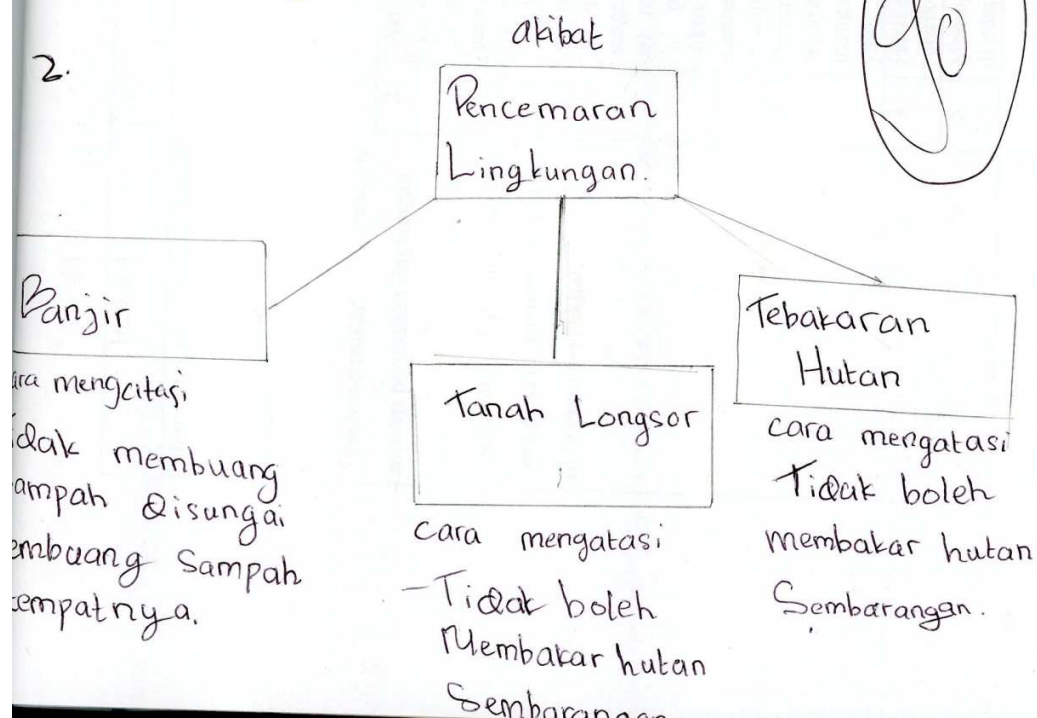 90
akibat
2.
Pencemaran
Lingkungan.
Banjir
ara mengatasi
idak membuang
ampah disungai
embuang Sampah
tempatnya.
Tanah Longsor
cara mengatasi
- Tidak boleh
Membakar hutan
Sembarangan
Tebakaran
Hutan
cara mengatasi
Tidak boleh
membakar hutan
Sembarangan.